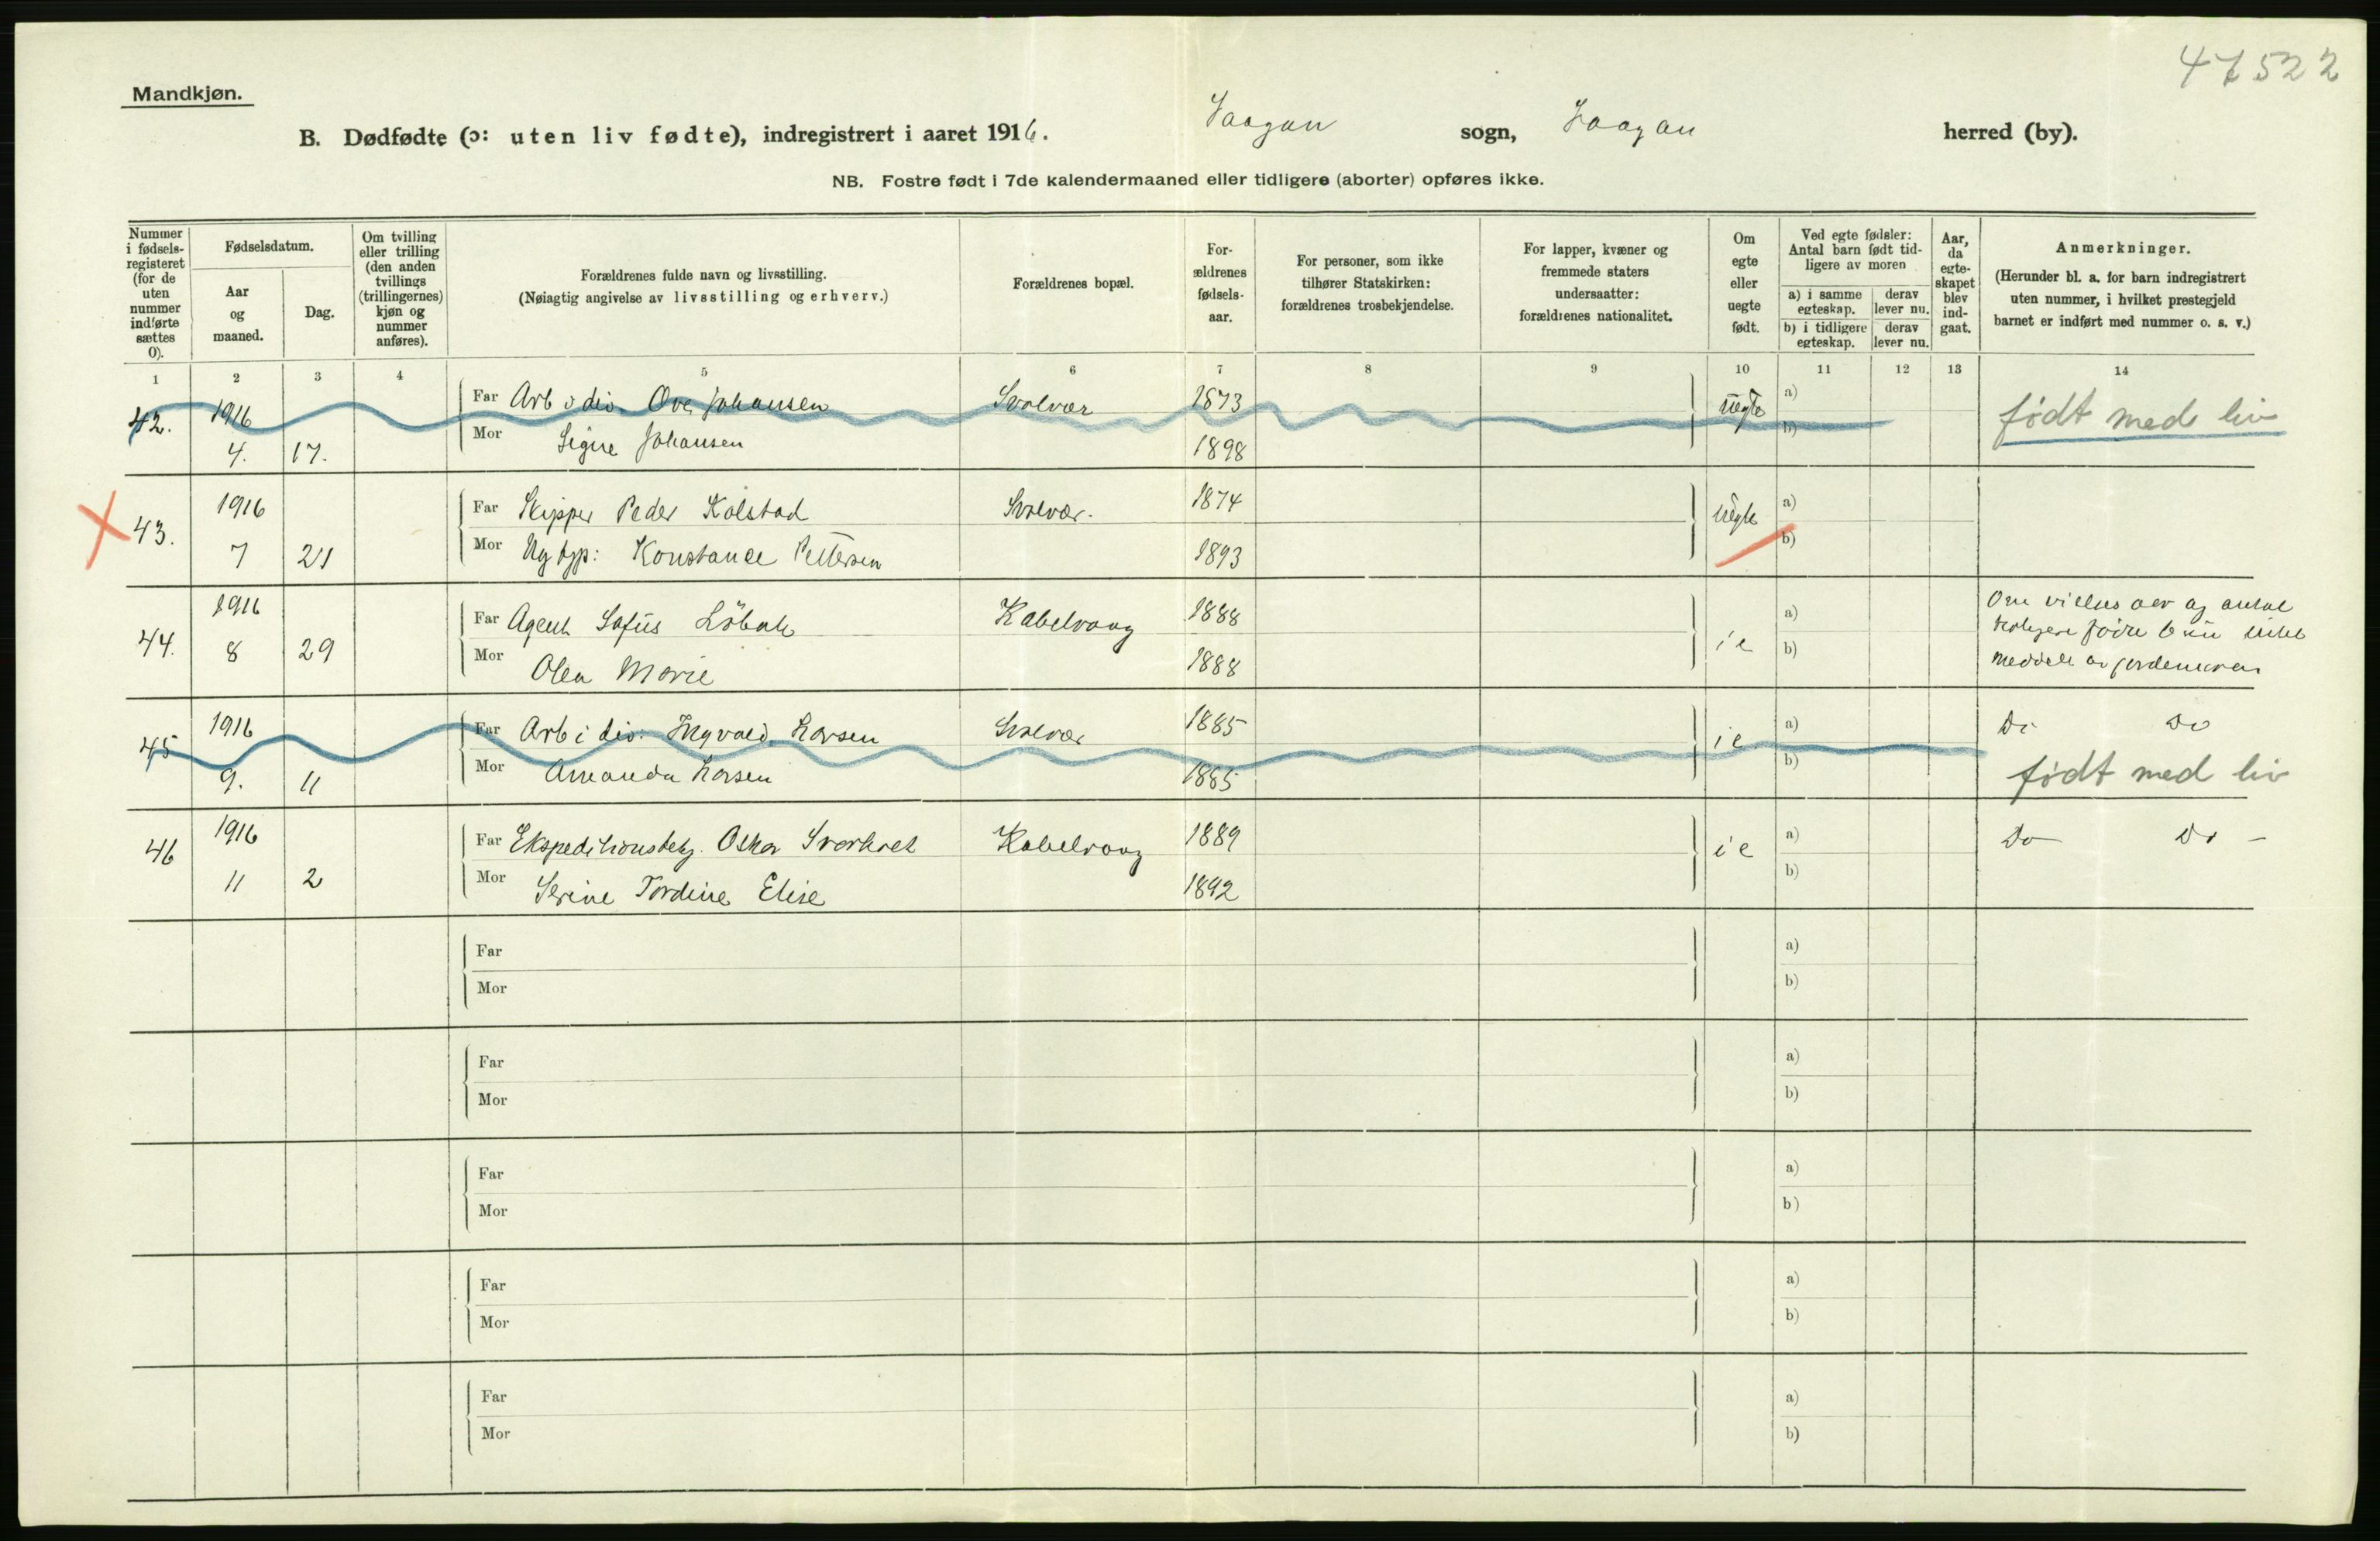 47522
Mandkjøn.
B. Dødfødte (ɔ: uten liv fødte), indregistrert i aaret 1916. Vaagan sogn, Vaagan herred (by).
NB. Fostre født i 7de kalendermaaned eller tidligere (aborter) opføres ikke.
Nummer i fødsels-registeret (for de uten nummer indførte sættes 0).
Fødselsdatum.
Aar og maaned.
Dag.
Om tvilling eller trilling (den anden tvillings (trillingernes) kjøn og nummer anføres).
Forældrenes fulde navn og livsstilling.
(Nøiagtig angivelse av livsstilling og erhverv.)
Forældrenes bopæl.
For-ældrenes fødsels-aar.
For personer, som ikke tilhører Statskirken: forældrenes trosbekjendelse.
For lapper, kvæner og fremmede staters undersaatter: forældrenes nationalitet.
Om egte eller uegte født.
Ved egte fødsler: Antal barn født tid-ligere av moren
a) i samme egteskap.
derav lever nu.
b) i tidligere egteskap.
derav lever nu.
Aar, da egte-skapet blev ind-gaat.
Anmerkninger.
(Herunder bl. a. for barn indregistrert uten nummer, i hvilket prestegjeld barnet er indført med nummer o. s. v.)
1 2 3 4 5 6 7 8 9 10 11 12 13 14
42. 1916 Far Arb i div. Ove Johansen Svolvær 1873 Uegte a) født med liv
4. 17. Mor Signe Johansen 1898 b)
43. 1916 Far Skipper Peder Kolstad Svolvær. 1874 Uegte a)
7 21 Mor Ug typ: Konstanse Pettersen 1893 b)
44. 1916 Far Agent Sofus Löbak Kabelvaag 1888 i e a) Om vielses aar og antal
8 29 Mor Olea Marie 1888 b) tidligere födte b
meddelt av jordemoren
45 1916 Far Arb i div. Ingvald Larsen Svolvær 1885 i e a) Do Do
9. 11 Mor Amanda Larsen 1885 b) født med liv
46 1916 Far Ekspeditionsbetj. Oskar Kabelvaag 1889 i e a) Do Do -
11 2 Mor Serine Tordine Elise 1892 b)
Far a)
Mor b)
Far a)
Mor b)
Far a)
Mor b)
Far a)
Mor b)
Far a)
Mor b)